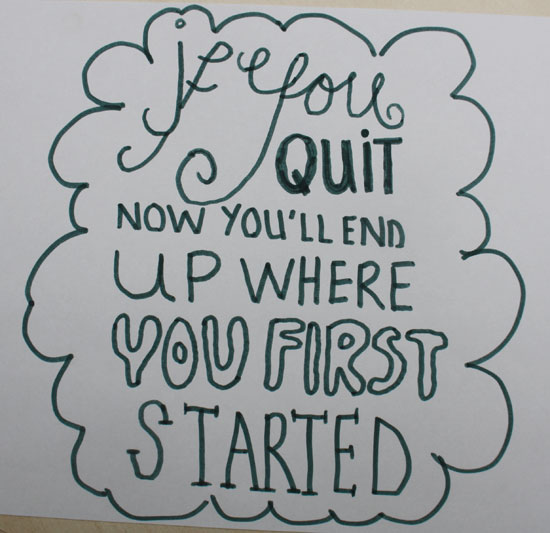 if you
QUiT
NOW YOU'LL END
UP WHERE
YOU FIRST
STARTED